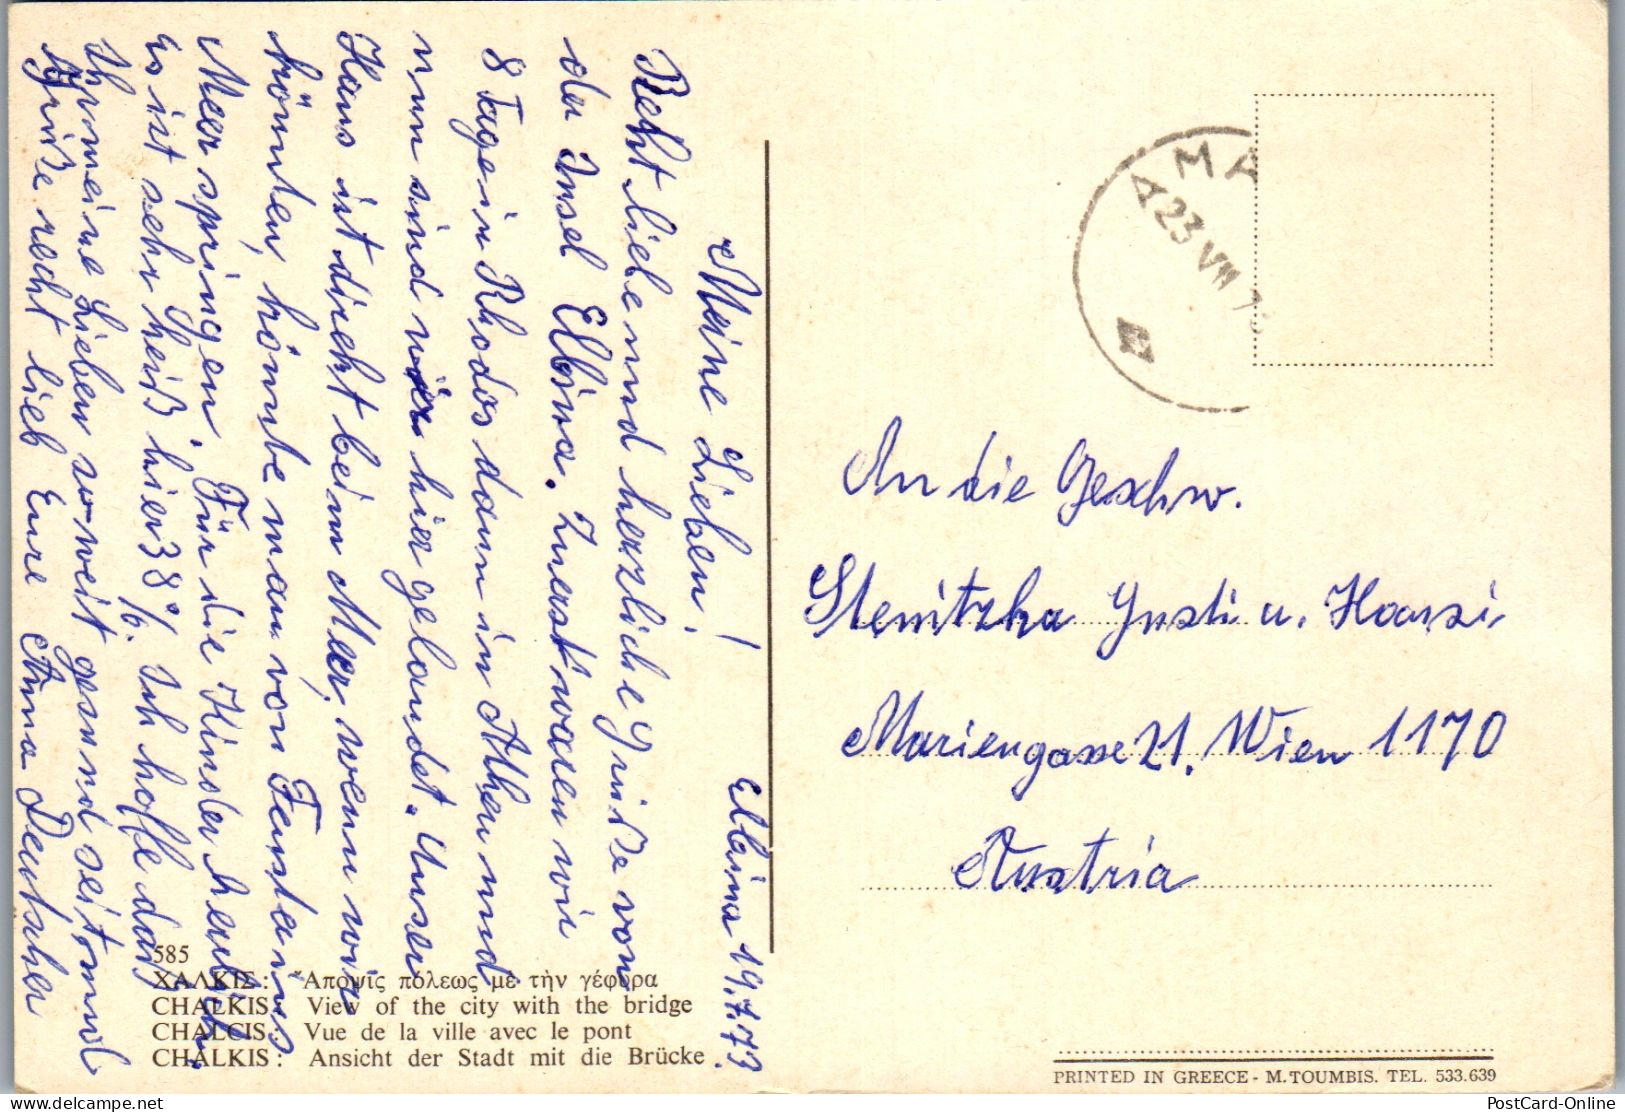 Elbina 19.7.73
Meine Lieben!
Recht liebe und herzliche Grüße von
der Insel Elbina. Zuerst waren wir
8 Tage in Rhodos dann in Athen und
nun sind wir hier gelandet. Unser
Haus ist direkt beim Meer, wenn wir
könnten, könnte man von Fenster ins
Meer springen. Für die Kinder herrlich.
Es ist sehr heiß hier 38%. Ich hoffe das
Ihr meine Lieben soweit gesund seit und
Grüße recht lieb Eure Anna Deutscher
A MA
23 VII 73
An die Geschw.
Stenitzka Gusti u. Hansi
Mariengasse 21. Wien 1170
Austria
585
ΧΑΛΚΙΣ: Ἄποψις πόλεως μὲ τὴν γέφυρα
CHALKIS: View of the city with the bridge
CHALCIS: Vue de la ville avec le pont
CHALKIS: Ansicht der Stadt mit die Brücke
PRINTED IN GREECE - M. TOUMBIS. TEL. 533.639
www.delcampe.net
PostCard-Online